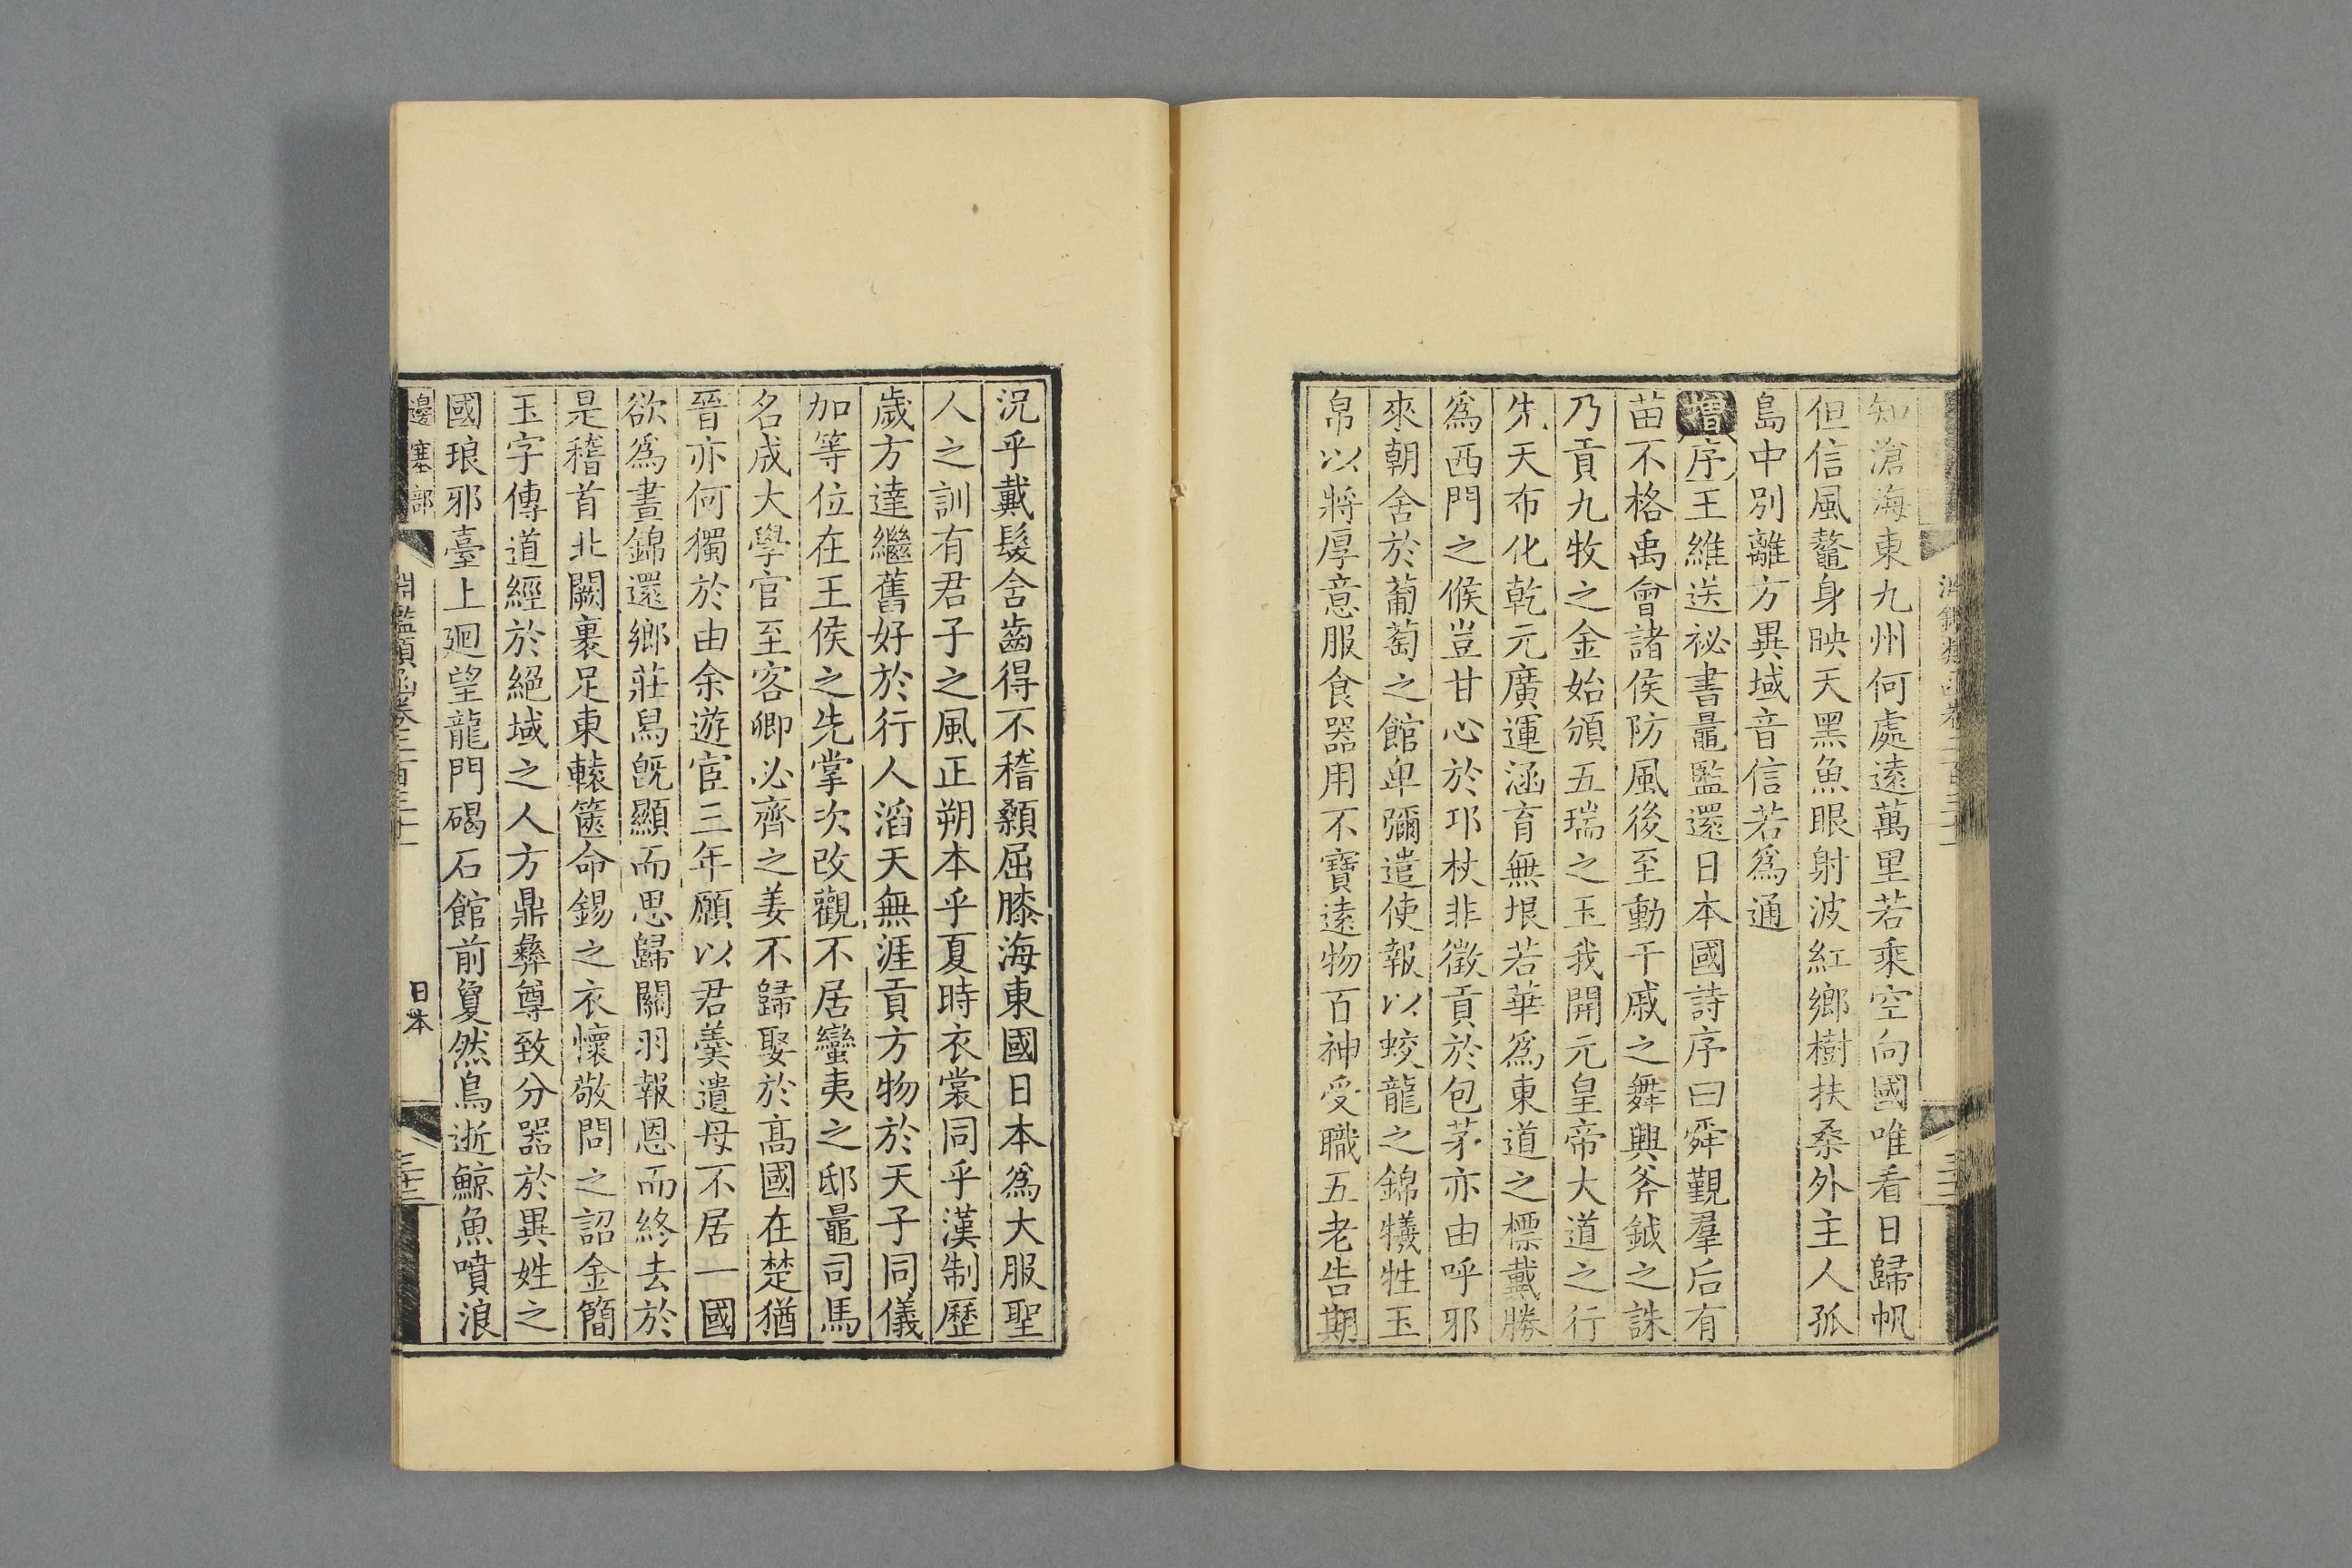 知滄海東九州何處遠萬里若乘空向國唯看日歸帆
但信風鼇身映天黑魚眼射波紅鄉樹扶桑外主人孤
島中別離方異域音信若爲通
增序王維送祕書鼂監還日本國詩序曰舜覲羣后有
苗不格禹會諸侯防風後至動干戚之舞興斧鉞之誅
乃貢九牧之金始頒五瑞之玉我開元皇帝大道之行
先天布化乾元廣運涵育無垠若華爲東道之標戴勝
爲西門之候豈甘心於邛杖非徵貢於包茅亦由呼邪
來朝舍於蒲萄之館卑彌遣使報以蛟龍之錦犧牲玉
帛以將厚意服食器用不寶遠物百神受職五老告期
況乎戴髮含齒得不稽顙屈膝海東國日本爲大服聖
人之訓有君子之風正朔本乎夏時衣裳同乎漢制歷
歲方達繼舊好於行人滔天無涯貢方物於天子同儀
加等位在王侯之先掌次改觀不居蠻夷之邸鼂司馬
名成大學官至客卿必齊之姜不歸娶於高國在楚猶
晉亦何獨於由余遊宦三年願以君羹遺母不居一國
欲爲晝錦還鄉莊舄旣顯而思歸關羽報恩而終去於
是稽首北闕裹足東轅篋命錫之衣懷敬問之詔金簡
玉字傳道經於絕域之人方鼎彝尊致分器於異姓之
國琅邪臺上迴望龍門碣石館前夐然鳥逝鯨魚噴浪
邊塞部
淵鑑類函卷二百三十一
日本